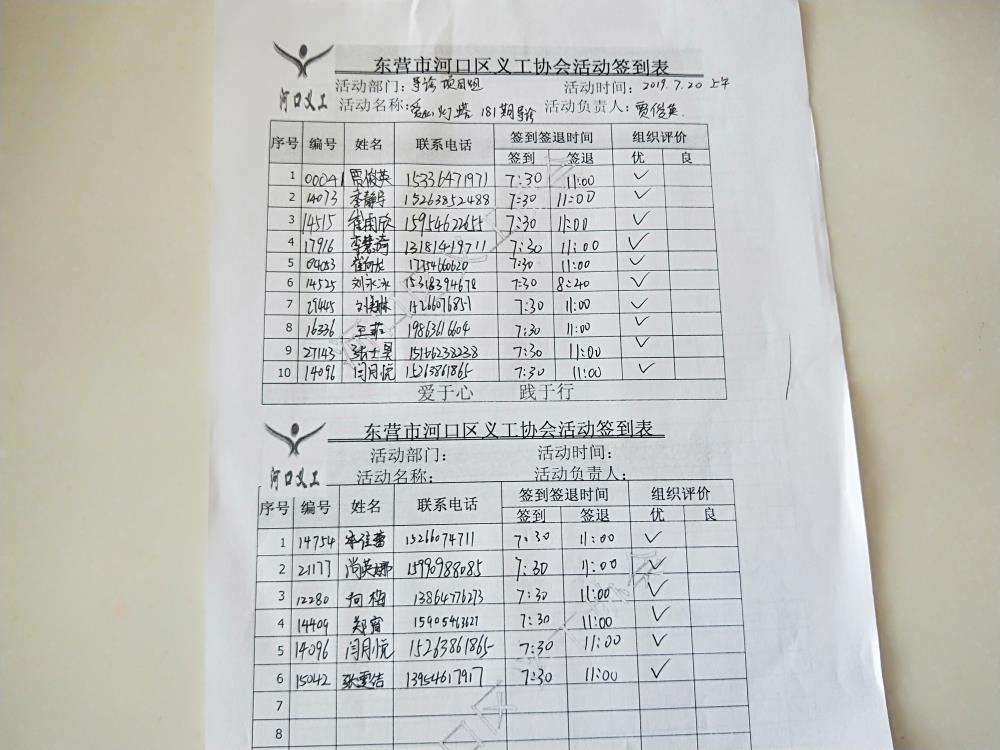 东营市河口区义工协会活动签到表
活动部门：导诊项目组 活动时间：2019.7.20上午
河口义工
活动名称：爱心灯塔181期导诊 活动负责人：贾俊英
序号 编号 姓名 联系电话 签到签退时间 组织评价
签到 签退 优 良
1 00041 贾俊英 15336471971 7:30 11:00 ✓
2 14073 李静 15263852488 7:30 11:00 ✓
3 14515 雨欣 15954622655 7:30 11:00 ✓
4 17916 李慧琦 13181419711 7:30 11:00 ✓
5 04053 7:30 11:00 ✓
6 14525 刘永冰 15318394678 7:30 8:40 ✓
7 29445 刘 15266076851 7:30 11:00 ✓
8 16336 王菲 7:30 11:00 ✓
9 27143 张士昊 15166238238 7:30 11:00 ✓
10 14096 闫月悦 15263861865 7:30 11:00 ✓
爱于心 践于行
东营市河口区义工协会活动签到表
活动部门： 活动时间：
河口义工
活动名称： 活动负责人：
序号 编号 姓名 联系电话 签到签退时间 组织评价
签到 签退 优 良
1 14754 李佳蕾 15266074711 7:30 11:00 ✓
2 21177 尚英娜 15990988085 7:30 11:00 ✓
3 12280 梅 13864776273 7:30 11:00 ✓
4 14409 郑宵 15905463627 7:30 11:00 ✓
5 14096 闫月悦 15263861865 7:30 11:00 ✓
6 15042 张雯洁 13954617917 7:30 11:00 ✓
7
8